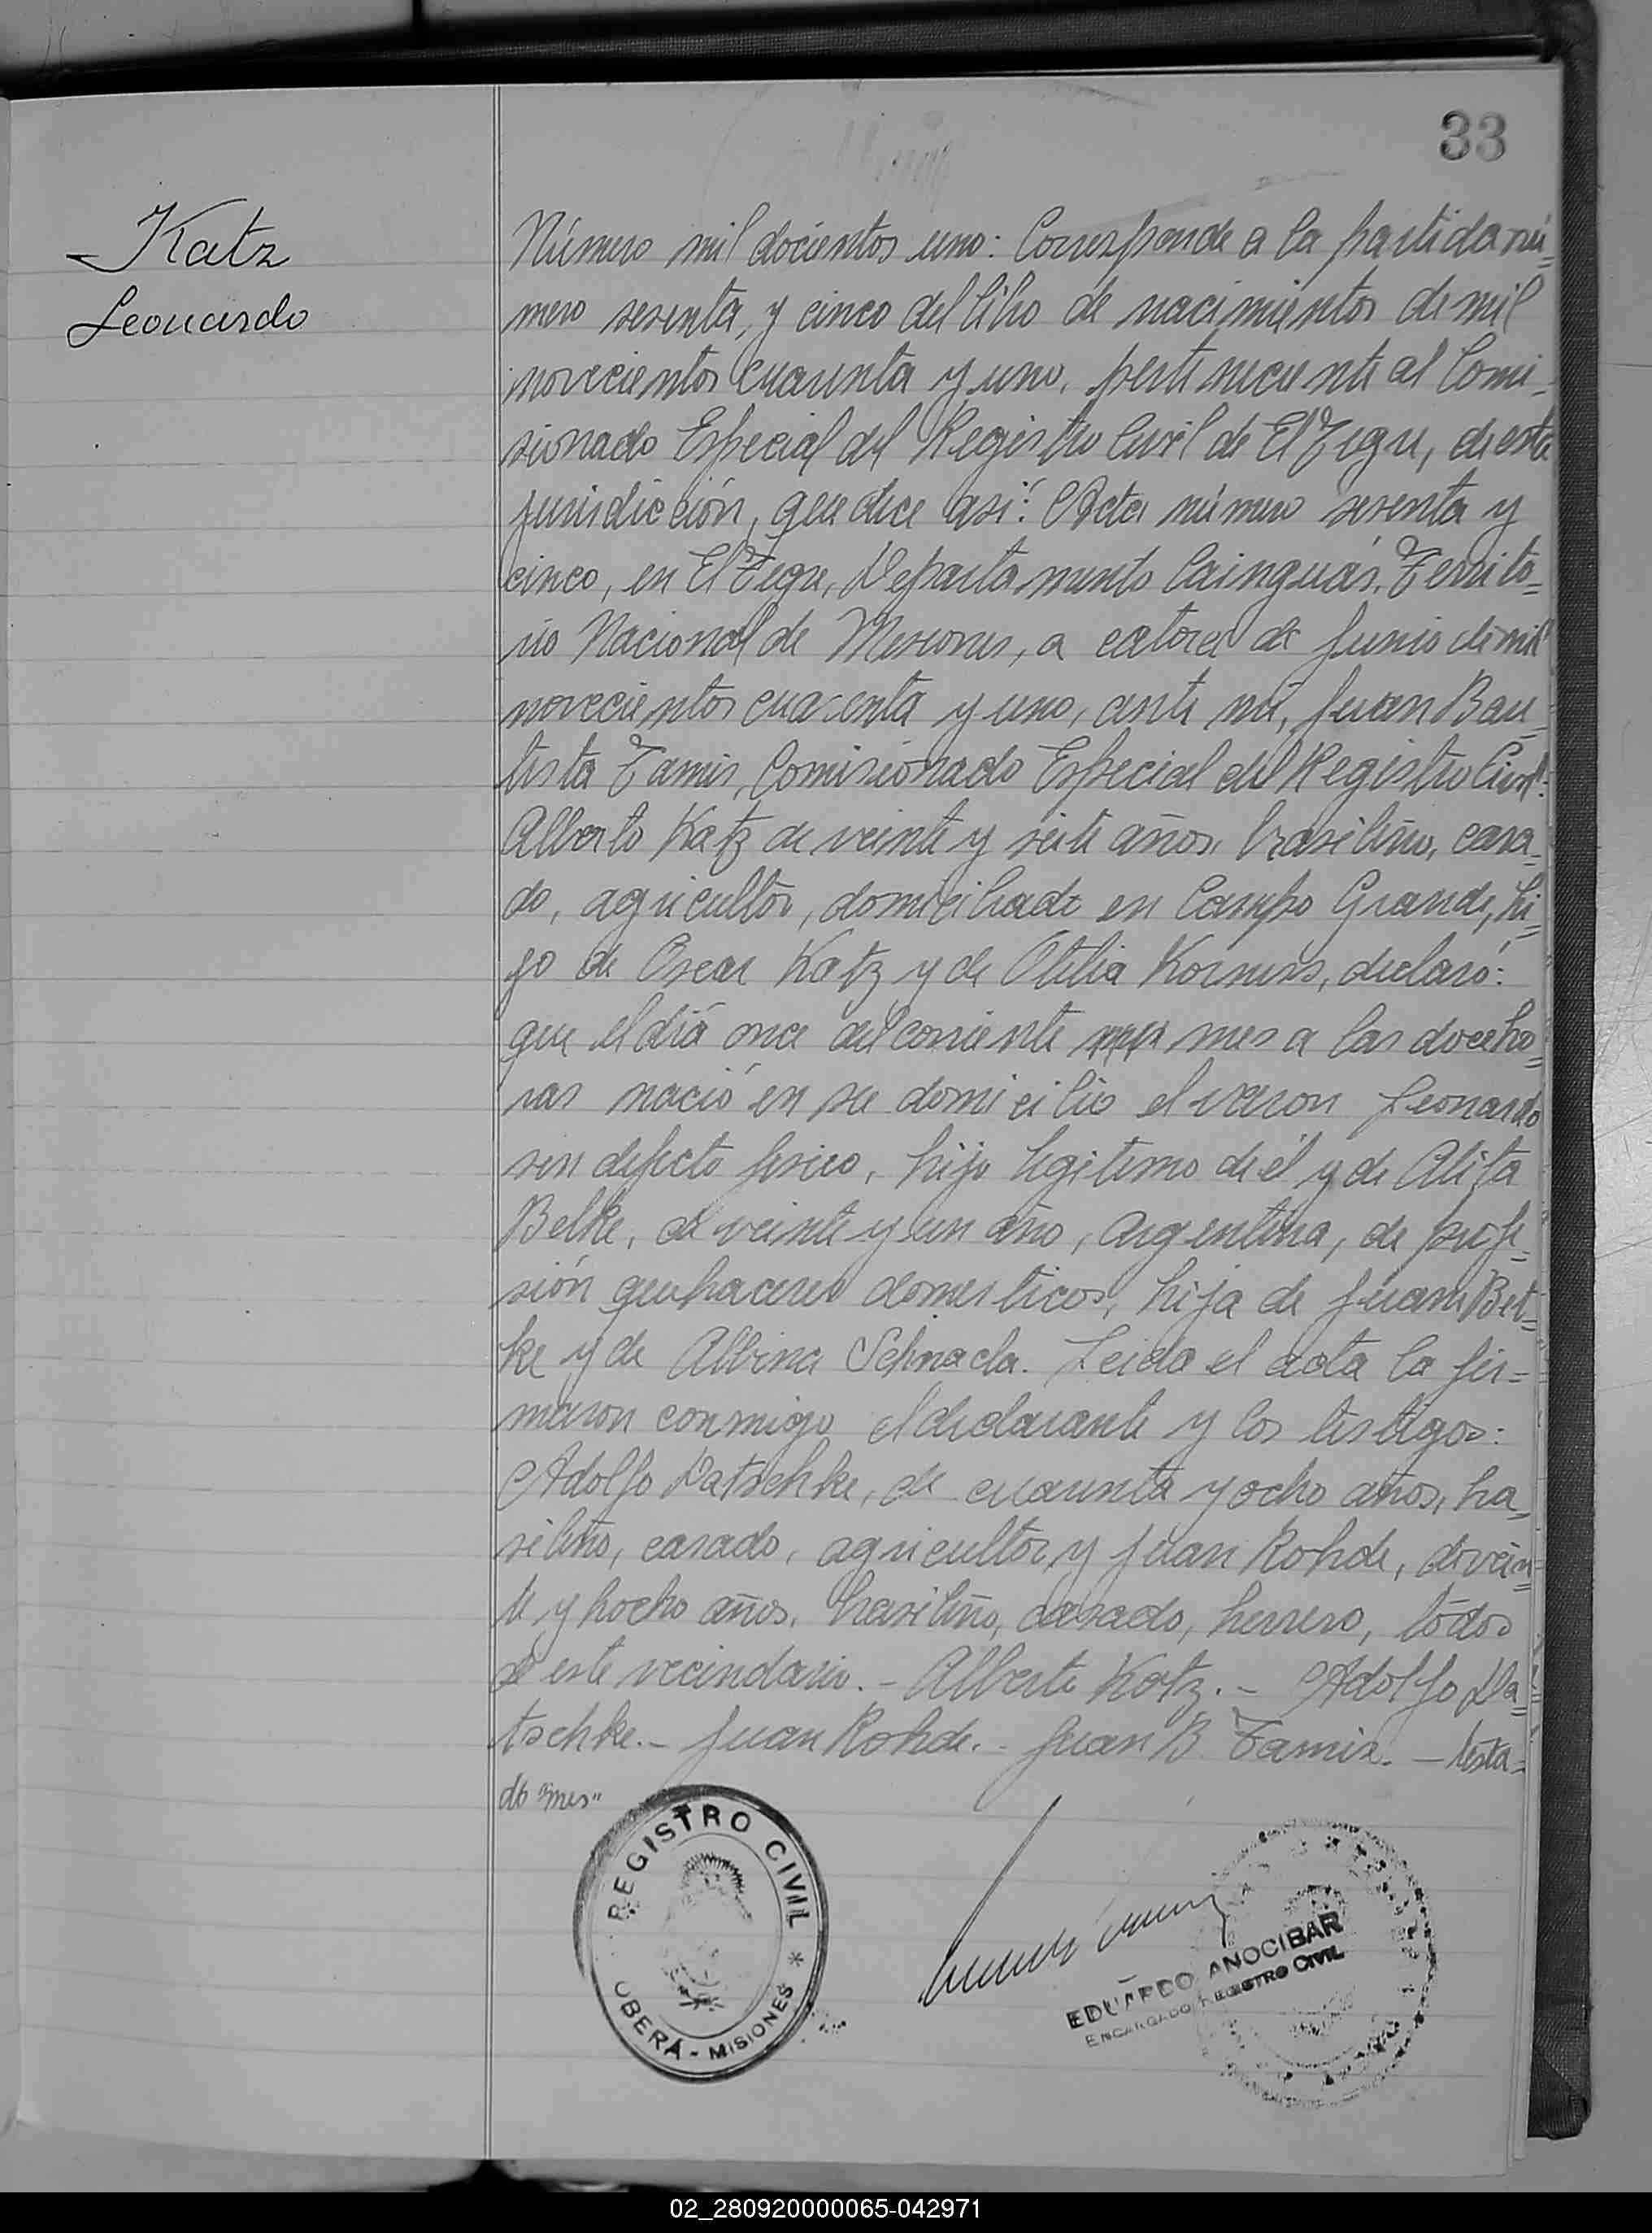 33
Katz
Leonardo
Número mil docientos uno: Corresponde a la partida nú=
mero sesenta, y cinco del libro de nacimientos de mil
novecientos cuarenta y uno, perteneciente al Comi-
sionado Especial del Registro Civil de El Tigre, de esta
jurisdicción, que dice así: Acta número sesenta y
cinco, en El Tigre, Departamento Cainguás, Territo=
rio Nacional de Misiones, a catorce de junio de mil
novecientos cuarenta y uno, ante mí, Juan Bau-
tista Tamis, Comisionado Especial del Registro Civil:
Alberto Katz de veinte y siete años, brasileño, casa-
do, agricultor, domiciliado en Campo Grande, hi=
jo de Oscar Katz y de Otilia Korners, declaró:
que el día once del corriente mes a las doce ho=
ras nació en su domicilio el varon Leonardo
sin defecto fisico, hijo legitimo de él y de Alita
Belke, de veinte y un año, argentina, de profe=
sión quehaceres domesticos, hija de Juan Bel=
ke y de Albina Schnacla. Leida el acta la fir=
maron conmigo el declarante y los testigos:
Adolfo Datschke, de cuarenta y ocho años, bra=
sileño, casado, agricultor y Juan Rohde, de vein=
te y hocho años, brasileño, casado, herrero, todos
de este vecindario. - Alberto Katz. - Adolfo Da=
tschke. - Juan Rohde. - Juan B. Tamis. - Testa=
do "mes"
REGISTRO CIVIL *
OBERÁ - MISIONES
EDUARDO ANOCIBAR
ENCARGADO REGISTRO CIVIL
02_280920000065-042971